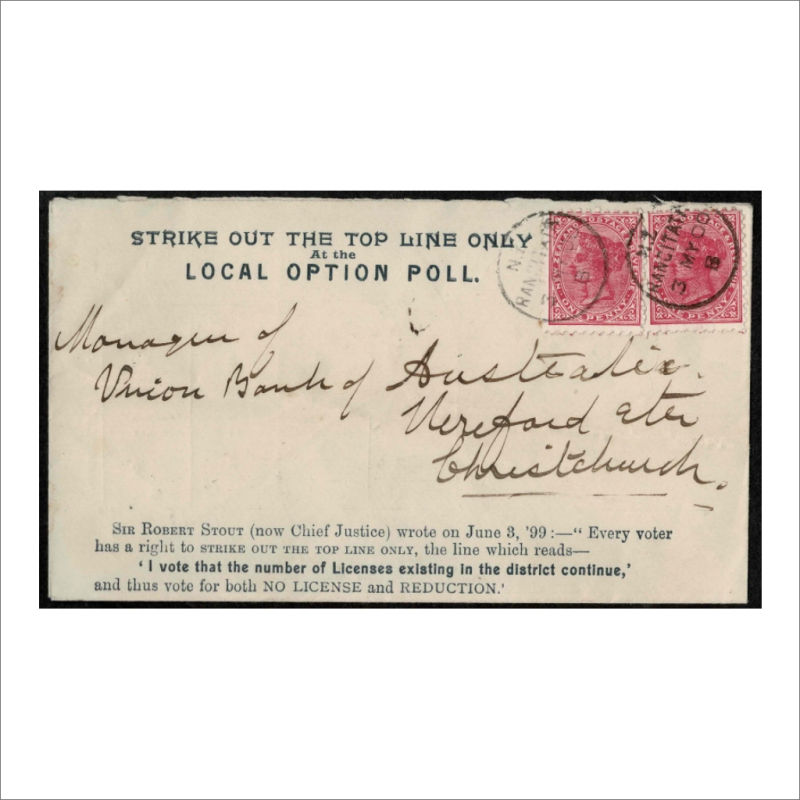 STRIKE OUT THE TOP LINE ONLY
At the
LOCAL OPTION POLL.
NEW ZEALAND POSTAGE
ONE PENNY
N.Z
RANGITATA
3
N.Z
RANGITATA
3 MY 00
8
Manager of
Union Bank of Australia.
Hereford Ster
Christchurch.
SIR ROBERT STOUT (now Chief Justice) wrote on June 3, '99 :—“ Every voter
has a right to STRIKE OUT THE TOP LINE ONLY, the line which reads—
‘ I vote that the number of Licenses existing in the district continue,’
and thus vote for both NO LICENSE and REDUCTION.’